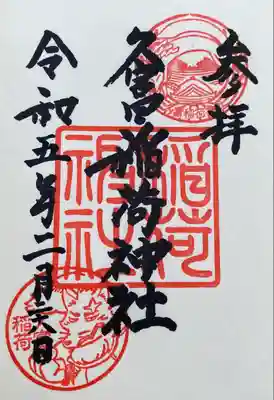 参拝
久富稲荷神社
令和五年二月六日
稲荷
神社
稲荷